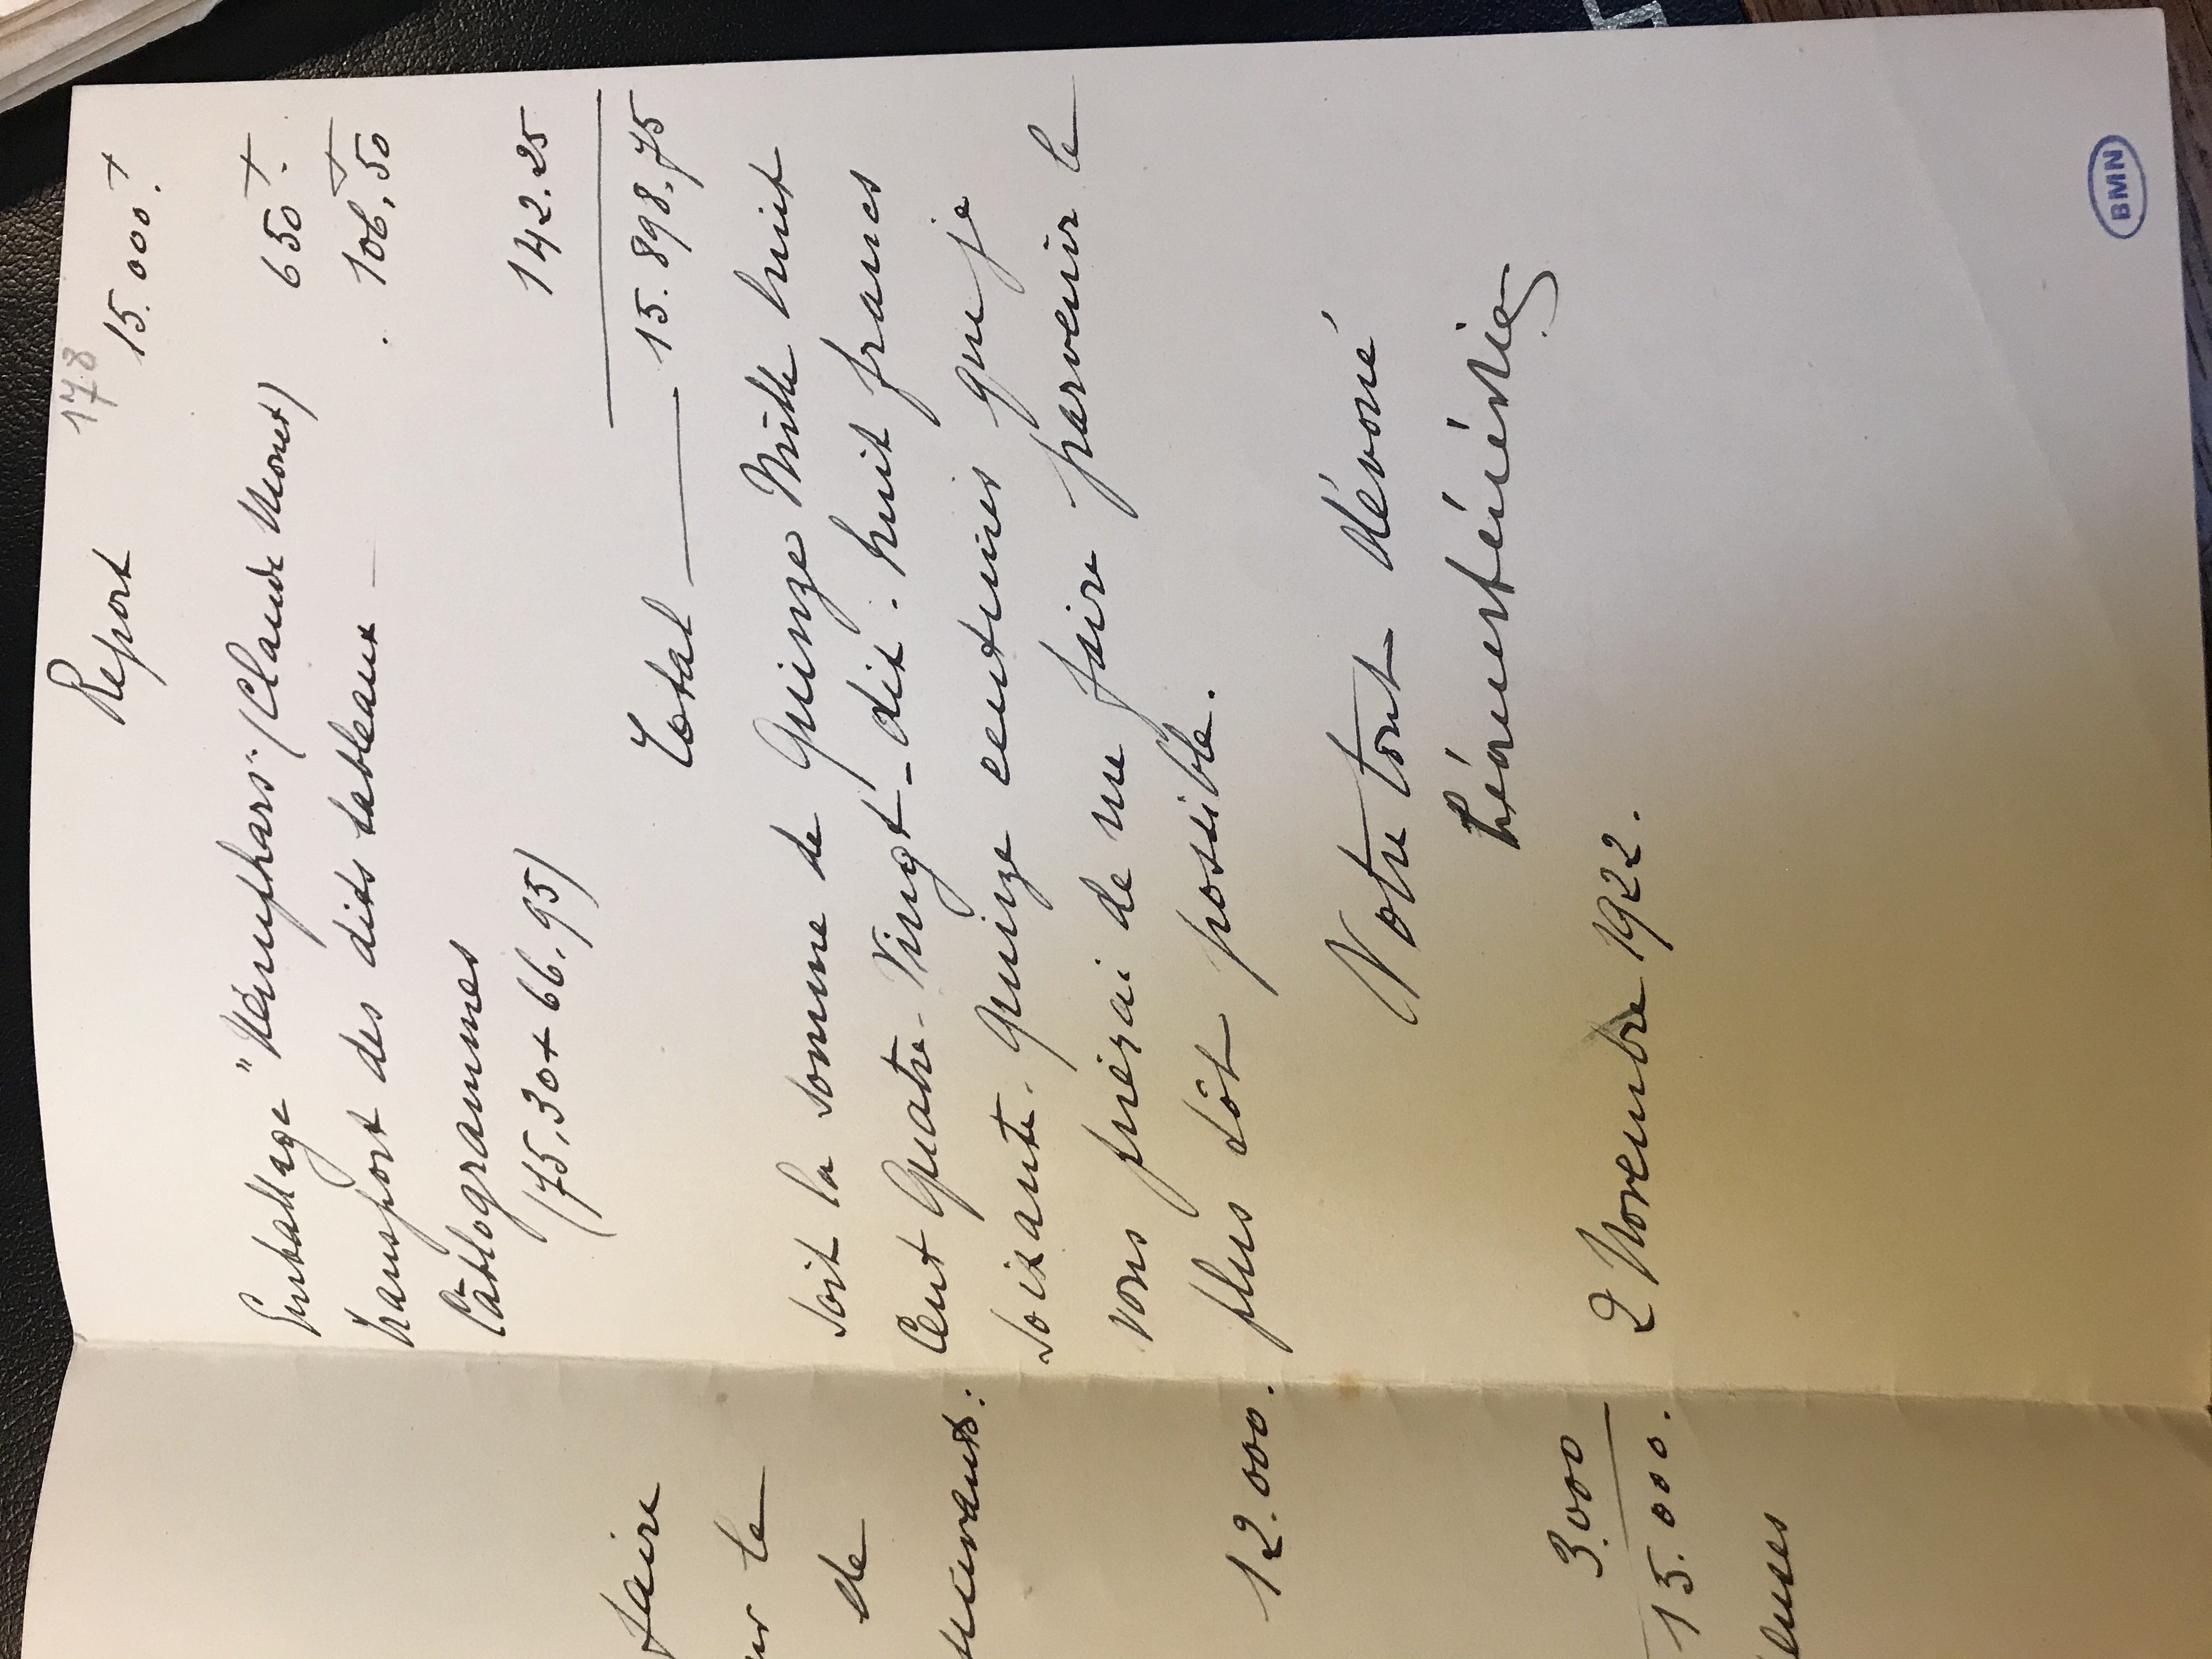 faire
le
de
suivants:
12.000.
3.000
15.000.
178
Report 15.000f.
Emballage "Nénuphars" (Claude Monet) 650f.
Transport des dits tableaux 106,50
Câblogrammes 142.25
(75,30 + 66.95)
Total 15.898.75
Soit la somme de Quinze Mille huit
Cent Quatre-Vingt-dix-huit francs
Soixante-Quinze centimes que je
vous prierai de me faire parvenir le
plus tôt possible.
Votre tout dévoué
Léonce Bénédite
2 Novembre 1922.
BMN